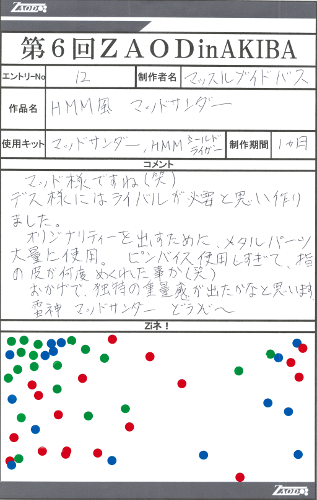 ZAOD
第6回ZAODinAKIBA
エントリーNo 12 製作者名 マッスルブイドバス
作品名 HMM風 マッドサンダー
使用キット マッドサンダー,HMMシールドライガー 製作期間 1ヵ月
コメント
マッド様ですね(笑)
デス様にはライバルが必要と思い作り
ました。
オリジナリティーを出すために、メタルパーツ
大量に使用。ピンバイス使用しすぎて、指
の皮が何度めくれた事か(笑)
おかげで、独特の重量感が出たかなと思います
雷神 マッドサンダー どうぞ〜
Ziネ!
ZAOD